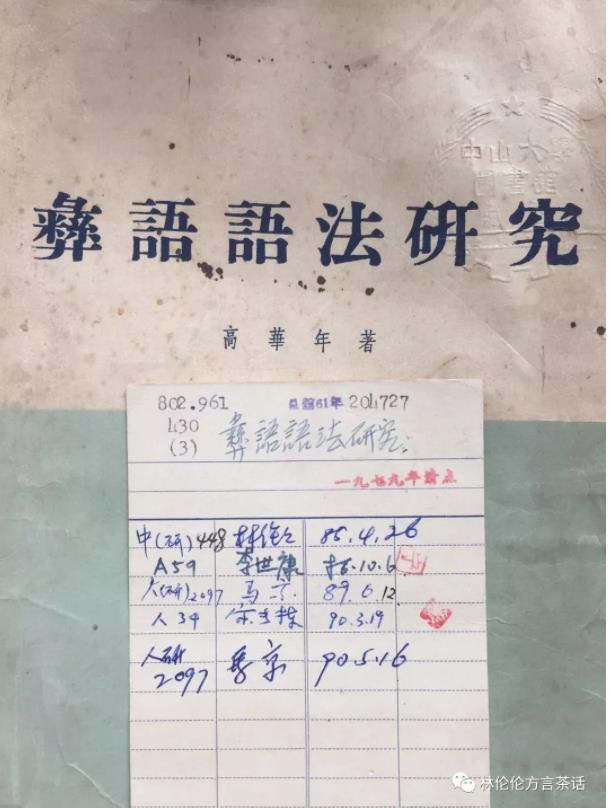 中山大學
圖書館
彝語語法研究
高華年著
802.961 見翻61年 204727
430
(3) 彝語語法研究
一九七九年清点
中(研)448 林伦伦 85.4.26
A59 李世康 10.6
(研)2097 马 89.6.12
人34 90.3.19
人研 90.5.16
2097
林伦伦方言茶话